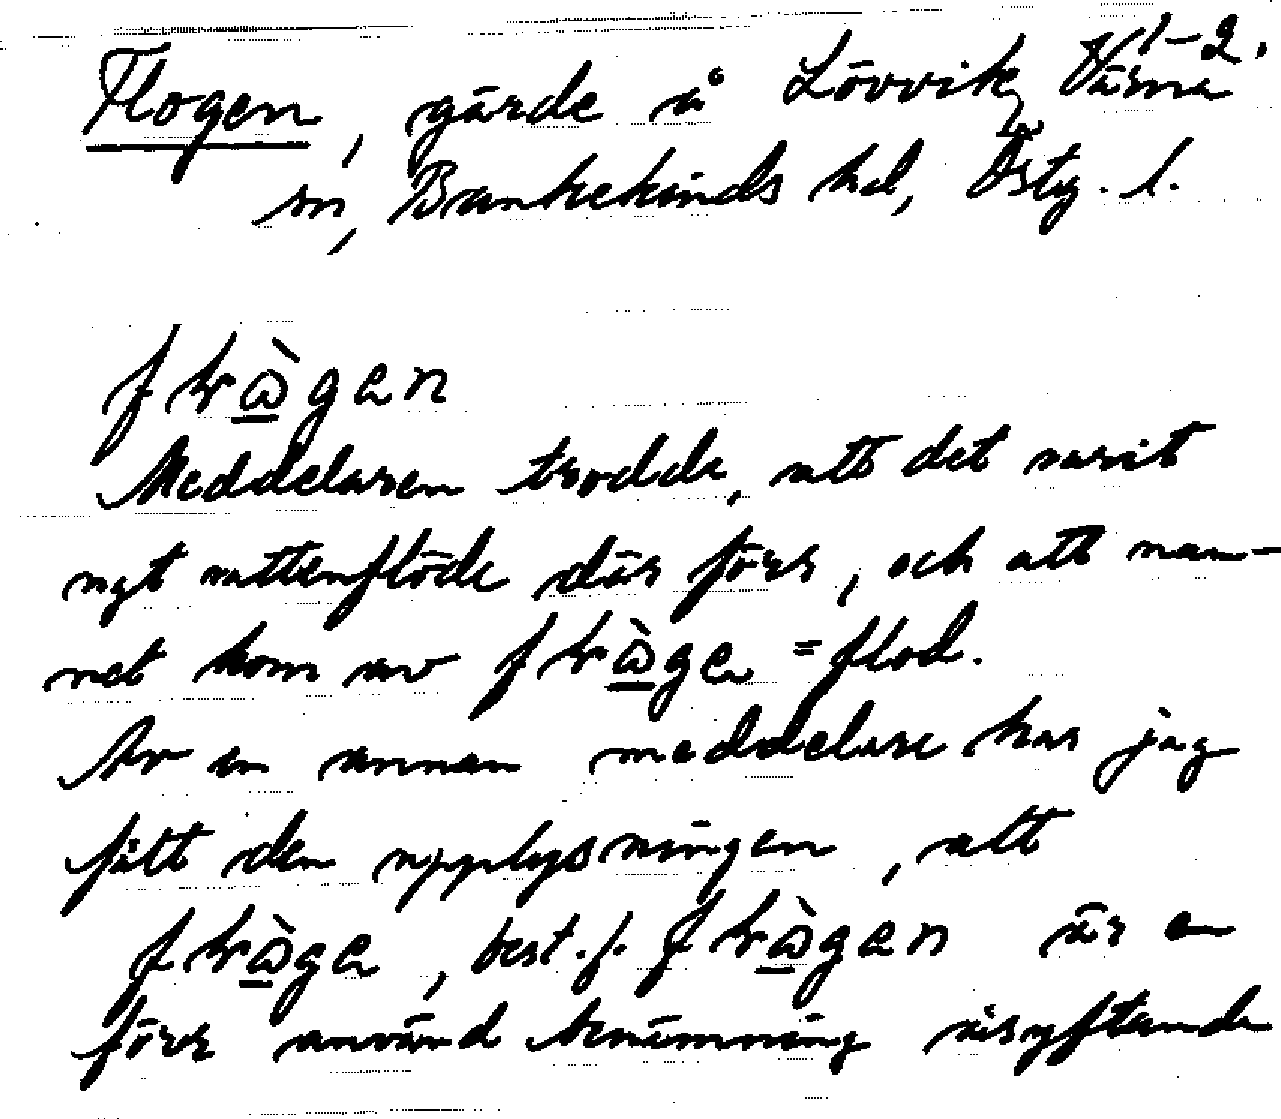 Flogen, gärde å Lövvik, Värna 1-2.
sn, Bankekinds hd, Östg. l.
Meddelaren trodde, att det varit
ngt vattenflöde där förr, och att nam-
net kom av = flod.
Av en annan meddelare har jag
fått den upplysningen, att
, best. f. är en
förr använd benämning åsyftande